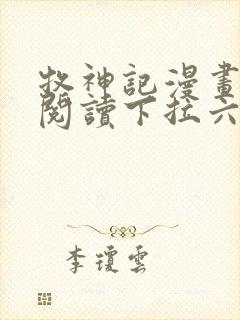 牧神記漫畫
閱讀下拉六
李瓊雲